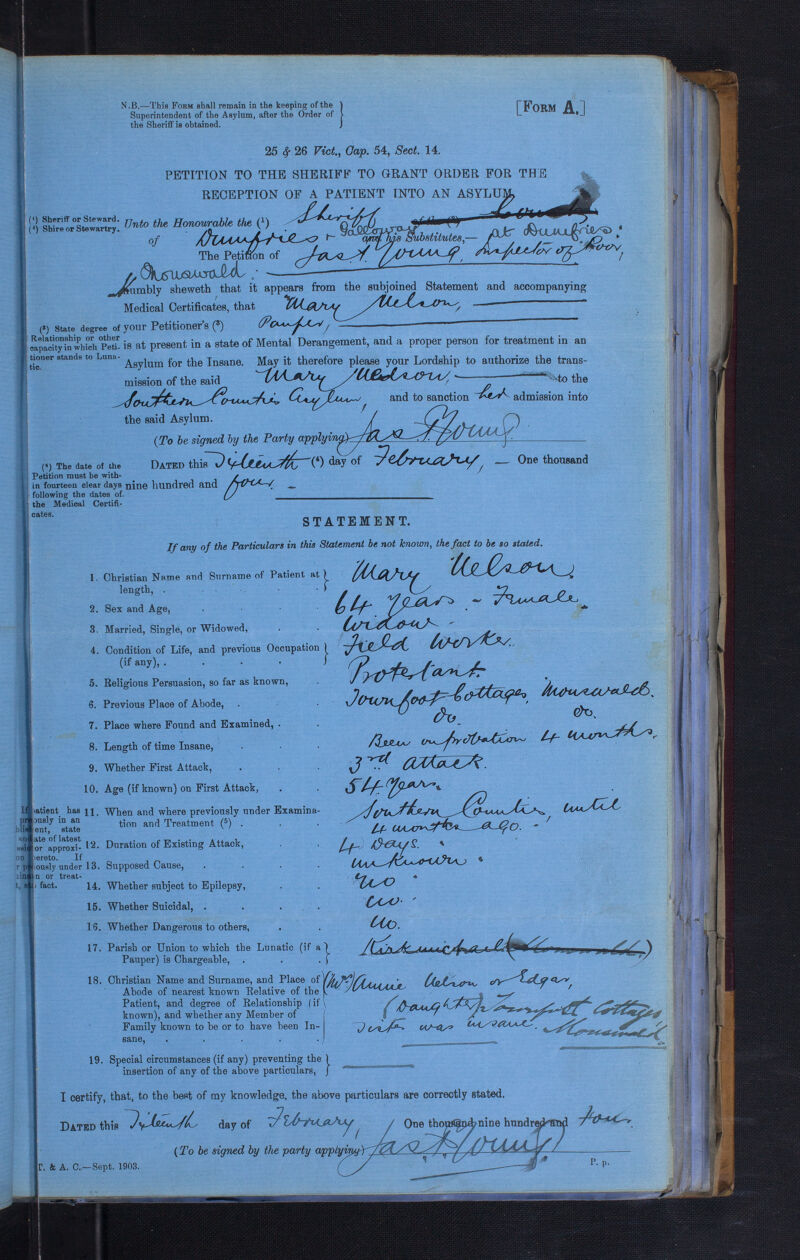 N.B.—This FORM shall remain in the keeping of the
Superintendent of the Asylum, after the Order of
the Sheriff is obtained.
[FORM A.]
25 & 26 Vict., Cap. 54, Sect. 14.
PETITION TO THE SHERIFF TO GRANT ORDER FOR THE
RECEPTION OF A PATIENT INTO AN ASYLUM.
(¹) Sheriff or Steward.
(²) Shire or Stewartry.
Unto the Honourable the (¹) Sheriff
of Dumfries & Galloway and his Substitutes,— at Dumfries:
The Petition of Jas. A. Young, Inspector of Poor,
Mouswald:
Humbly sheweth that it appears from the subjoined Statement and accompanying
Medical Certificates, that Mary Nelson,
(³) State degree of
Relationship or other
capacity in which Peti-
tioner stands to Luna-
tic.
your Petitioner's (³) Pauper,
is at present in a state of Mental Derangement, and a proper person for treatment in an
Asylum for the Insane. May it therefore please your Lordship to authorize the trans-
mission of the said Mary Nelson, to the
Southern Counties Asylum, and to sanction her admission into
the said Asylum.
(To be signed by the Party applying) Jas A. Young
(⁴) The date of the
Petition must be with-
in fourteen clear days
following the dates of
the Medical Certifi-
cates.
DATED this Sixteenth (⁴) day of February, — One thousand
nine hundred and four. –
STATEMENT.
If any of the Particulars in this Statement be not known, the fact to be so stated.
1. Christian Name and Surname of Patient at
length, . Mary Nelson.
2. Sex and Age, 64 Years. - Female.
3. Married, Single, or Widowed, Widow -
4. Condition of Life, and previous Occupation
(if any), . Field Worker.
5. Religious Persuasion, so far as known, Protestant.
6. Previous Place of Abode, . Townfoot Cottages, Mouswald.
7. Place where Found and Examined, . Do. Do.
8. Length of time Insane, Been on probation 4 months.
9. Whether First Attack, 3rd attack.
10. Age (if known) on First Attack, 54 Years.
11. When and where previously under Examina-
tion and Treatment (⁵) . Southern Counties, until
4 months ago. -
12. Duration of Existing Attack, 4 Days.
13. Supposed Cause, unknown
14. Whether subject to Epilepsy, no
15. Whether Suicidal, . no.
16. Whether Dangerous to others, No.
17. Parish or Union to which the Lunatic (if a
Pauper) is Chargeable, . Kirkmichael
18. Christian Name and Surname, and Place of
Abode of nearest known Relative of the
Patient, and degree of Relationship (if
known), and whether any Member of
Family known to be or to have been In-
sane, (Mrs) Annie Nelson or Edgar,
(Daughter) Townfoot Cottages
Sister was insane. Mouswald.
19. Special circumstances (if any) preventing the
insertion of any of the above particulars,
If patient has
ent, state
ate of latest
or approxi-
hereto. If
n or treat-
fact.
I certify, that, to the best of my knowledge, the above particulars are correctly stated.
DATED this Sixteenth day of February, One thousand nine hundred and Four.
(To be signed by the party applying) Jas A. Young
T. & A. C.—Sept. 1903.
P. p.